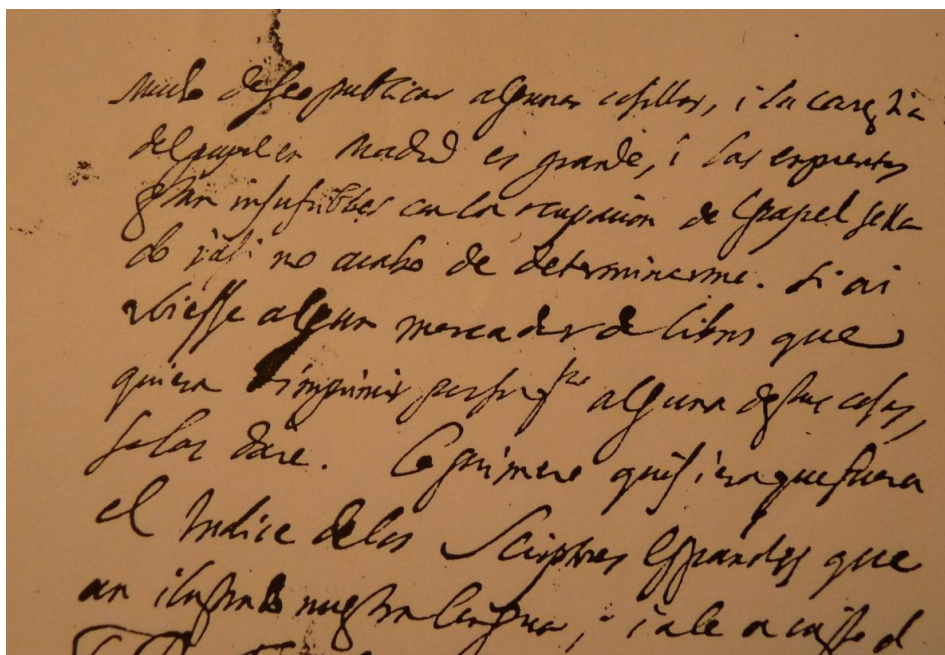 Mucho desseo publicar algunas cosillas, i la carestia
del papel en Madrid es grande, i las enprentas
estan insufribles con la ocupacion del papel sella
do i assi no acabo de determinarme. Si ai
ubiesse algun mercader de libros que
quiera imprimir por su alguna destas cosas,
se las dare. Lo primero quisiera que fuera
el Indice de los Scriptores Españoles que
an ilustrado nuestra lengua, i